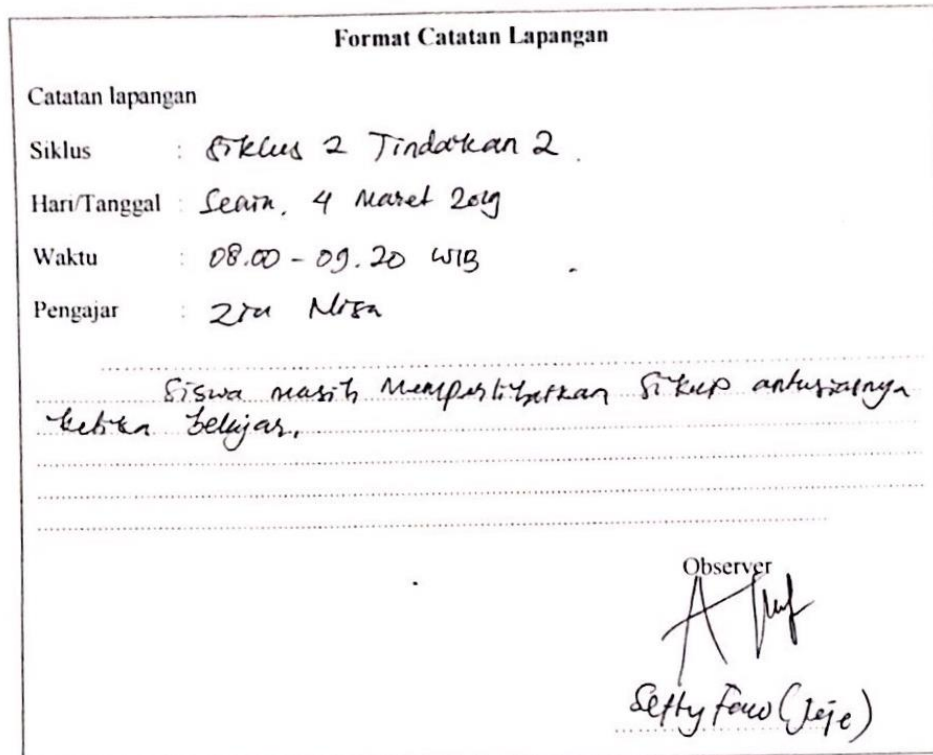 Format Catatan Lapangan
Catatan lapangan
Siklus : Siklus 2 Tindakan 2.
Hari/Tanggal : Senin, 4 Maret 2019
Waktu : 08.00 - 09.20 WIB
Pengajar : Zia Nisa
Siswa masih Memperlihatkan Sikap antusiasnya
ketika belajar.
Observer
(Jeje)